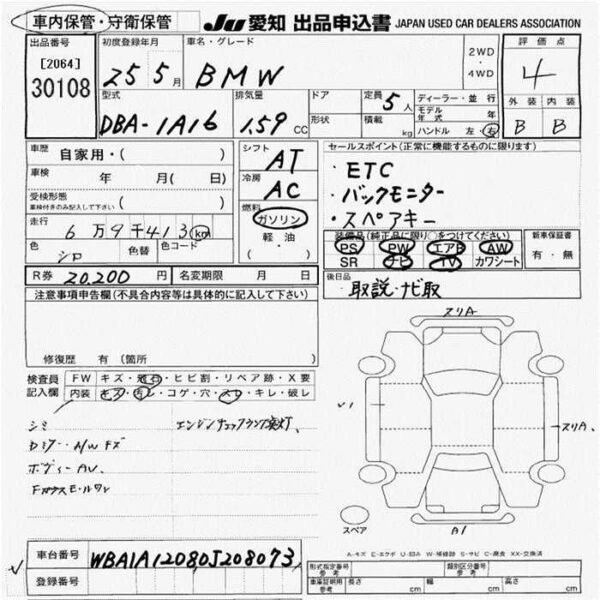 車内保管・守衛保管
JU 愛知 出品申込書 JAPAN USED CAR DEALERS ASSOCIATION
出品番号 初度登録年月 車名・グレード 2WD・4WD 評価点
[2064] 30108
25 5月 BMW 4
型式 排気量 ドア 定員 5人 ディーラー・並行 外装 内装
形状 積載 kg モデル年式 年 ハンドル 左・右
DBA-1A16 1.59 CC B B
車歴 自家用・( ) シフト AT セールスポイント(正常に機能するものに限ります)
車検 年 月( 日) 冷房 AC
・ETC
・バックモニター
・スペアキー
受検形態 車検付きのみ記入して下さい ( ) 燃料 ガソリン 軽油・( )
走行 6万9千413km
装備品(純正品に限り○をつけてください) 新車保証書
色 シロ 色替 色コード
PS PW エアB AW 有・無
SR ナビ TV カワシート
R券 20,200円 名変期限 月 日
後日品 取説・ナビ取
注意事項申告欄(不具合内容等は具体的に記載して下さい)
スリA
修復歴 有(箇所 )
検査員記入欄 FW キズ・飛石・ヒビ割・リペア跡・X要
内装 キズ・汚レ・コゲ・穴・スレ・キレ・破レ
U1 スリA
シミ エンジンチェックランプ点灯
A/Wキズ
ボディーAU
スペア A1
A-キズ E-エクボ U-凹み W-補修跡 S-サビ C-腐食 XX-交換済
車台番号 WBA1A12080J208073
登録番号
形式指定番号 参考 類別区分番号 参考
車庫証明用 参考 長さ cm 幅 cm 高さ cm